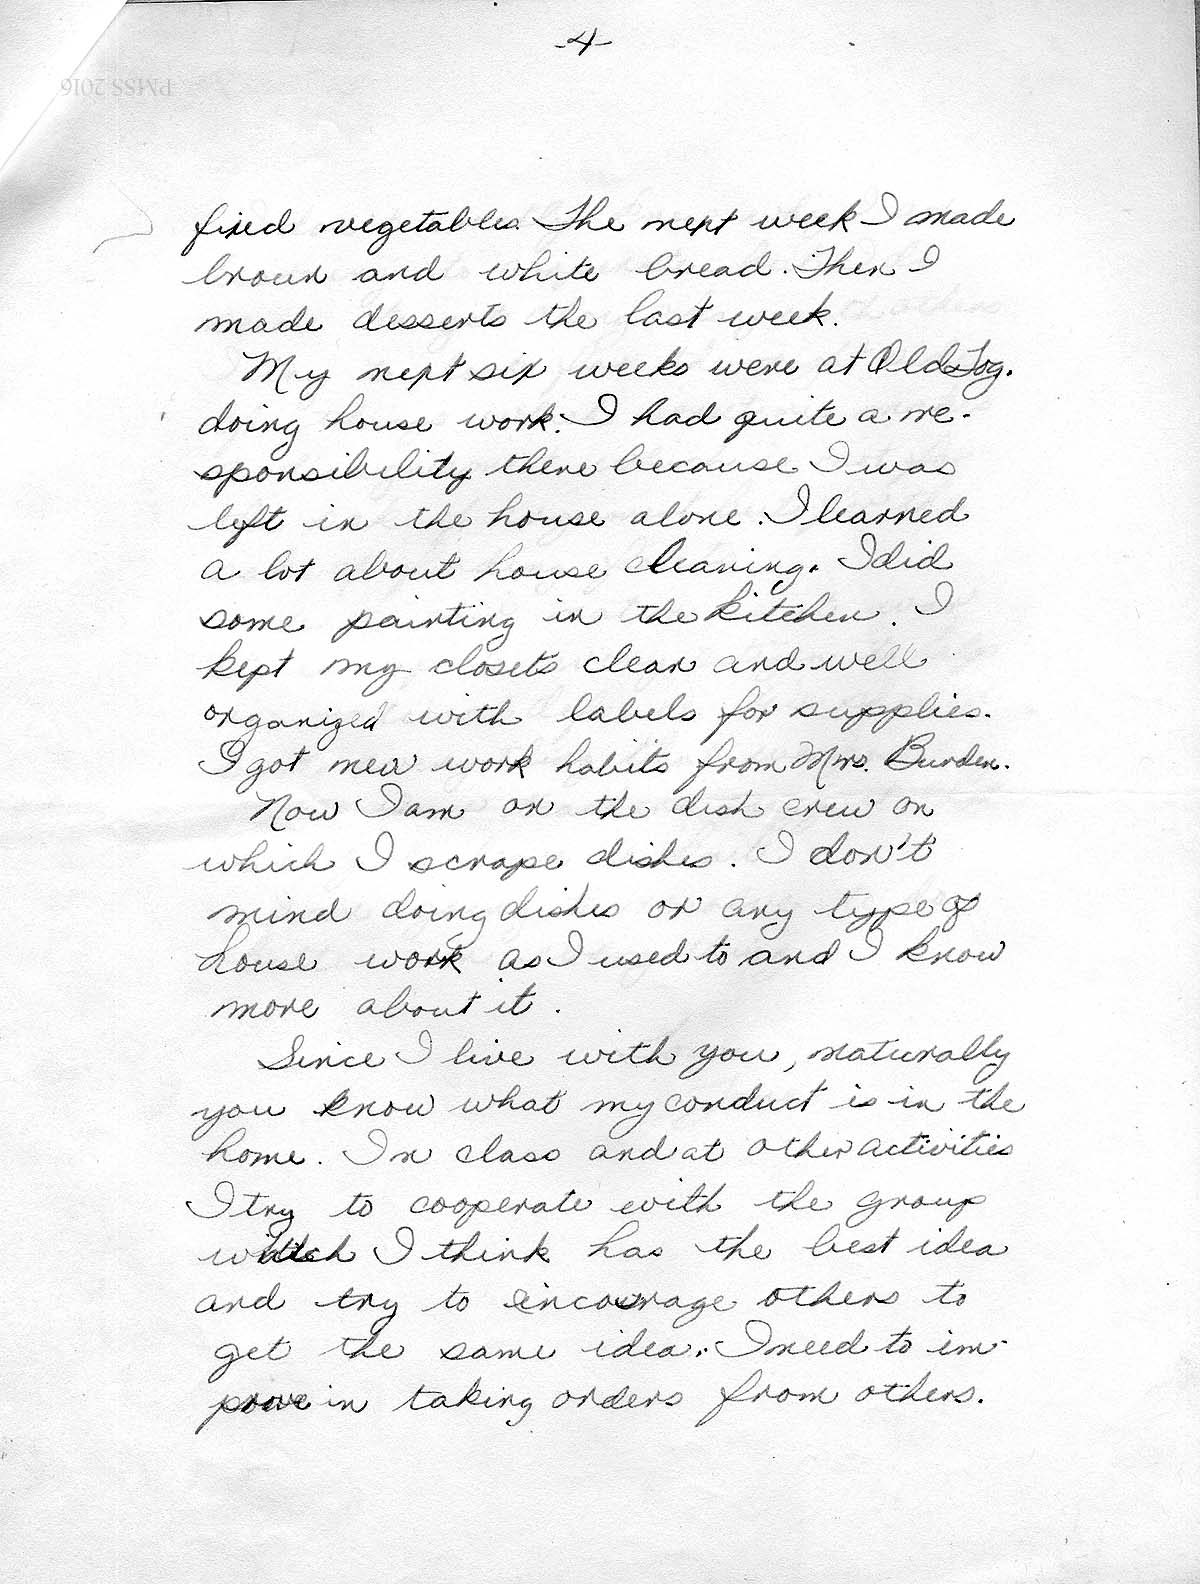 -4-
PMSS 2016
fixed vegetables. The next week I made
brown and white bread. Then I
made desserts the last week.
My next six weeks were at Old Log.
doing house work. I had quite a re-
sponsibility there because I was
left in the house alone. I learned
a lot about house cleaning. I did
some painting in the kitchen. I
kept my closets clean and well
organized with labels for supplies.
I got new work habits from Mrs. Burden.
Now I am on the dish crew on
which I scrape dishes. I don't
mind doing dishes or any type of
house work as I used to and I know
more about it.
Since I live with you, naturally
you know what my conduct is in the
home. In class and at other activities
I try to cooperate with the group
which I think has the best idea
and try to encourage others to
get the same idea. I need to im-
prove in taking orders from others.